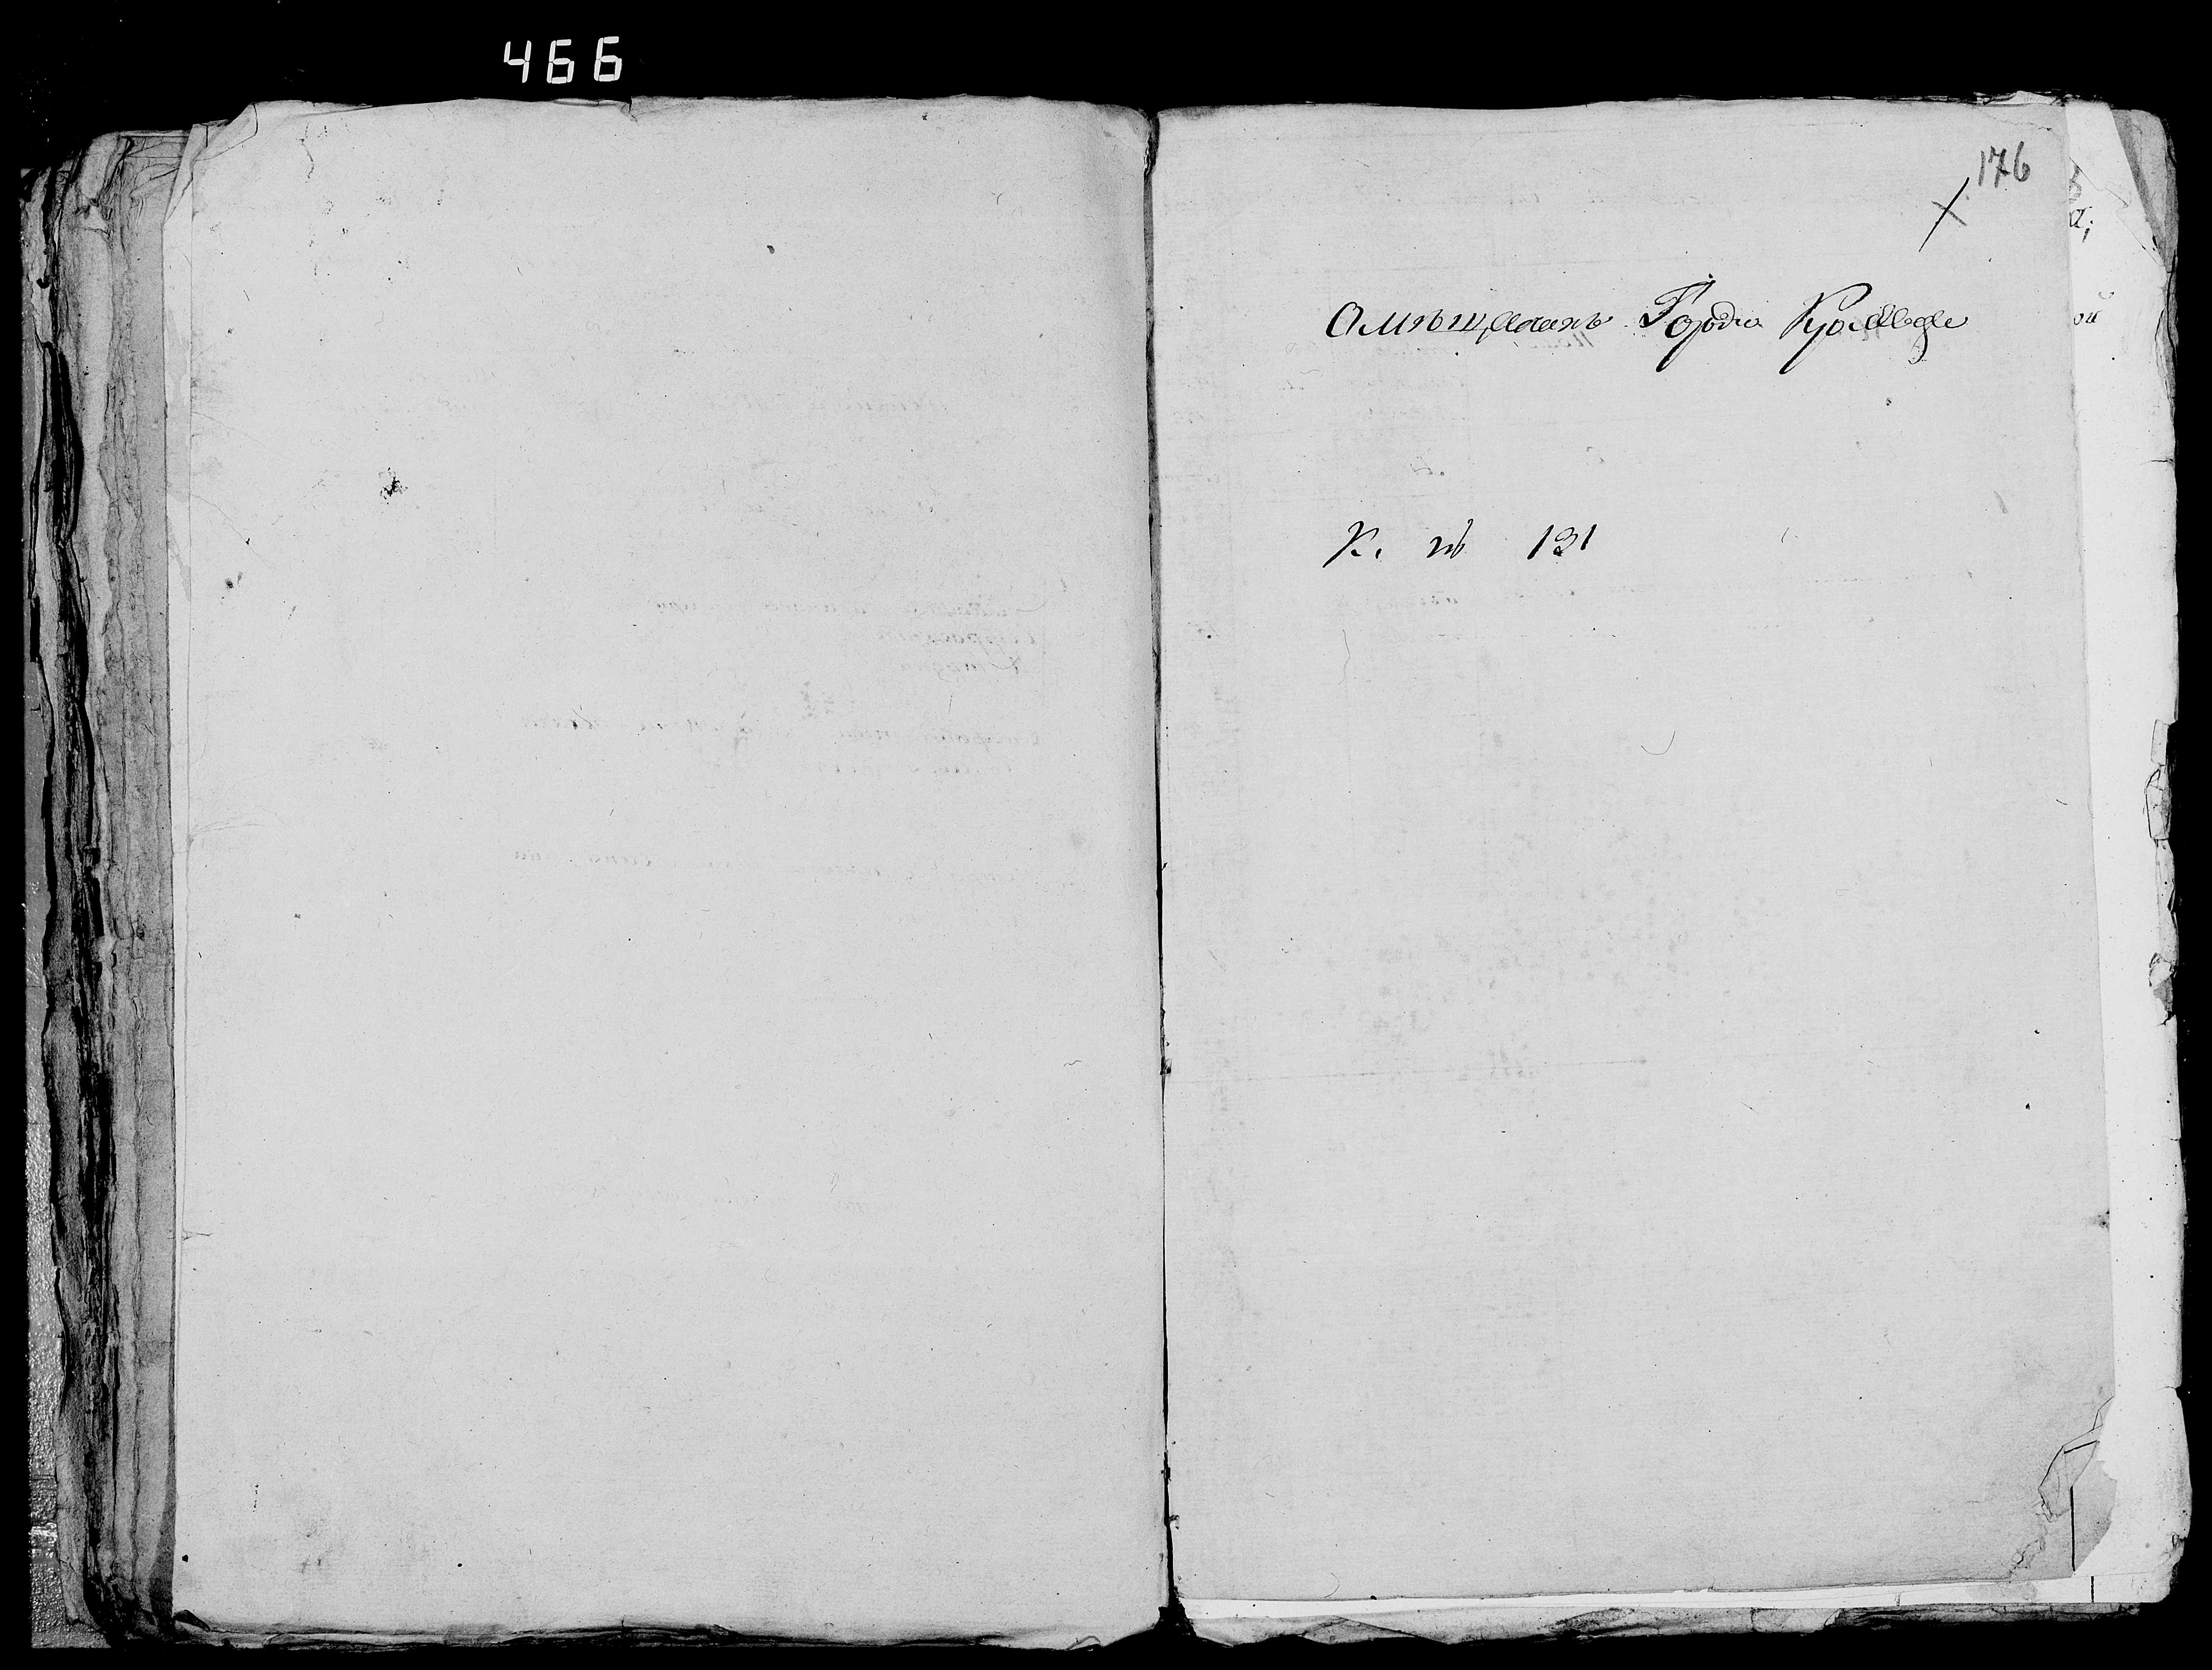 466
176
Омѣщанахъ Города Кролевца
К. № 131